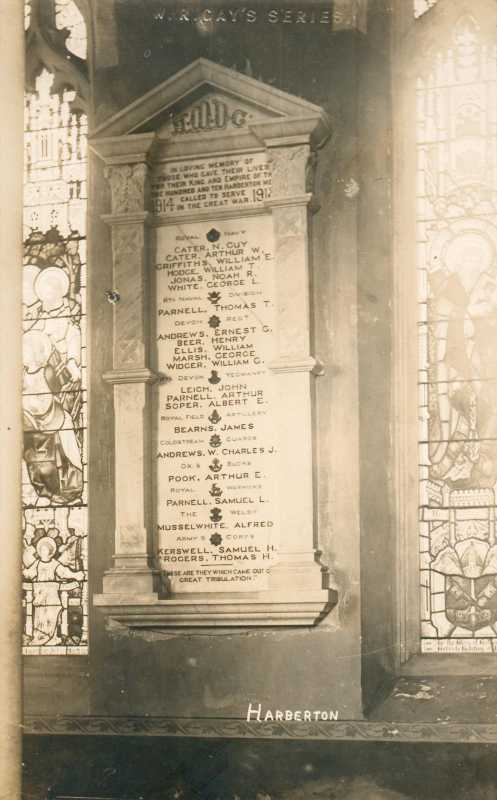 W. R. GAY'S SERIES.
IN LOVING MEMORY OF
THOSE WHO GAVE THEIR LIVES
FOR THEIR KING AND EMPIRE OF TH
ONE HUNDRED AND TEN HARBERTON ME
1914 CALLED TO SERVE 191
IN THE GREAT WAR.
ROYAL NAVY
CATER, N. GUY
CATER, ARTHUR W.
GRIFFITHS, WILLIAM E.
HODGE, WILLIAM T.
JONAS, NOAH R.
WHITE, GEORGE L.
NAVAL DIVISION
PARNELL, THOMAS T.
DEVON REGT
ANDREWS, ERNEST G.
BEER, HENRY
ELLIS, WILLIAM
MARSH, GEORGE
WIDGER, WILLIAM G.
DEVON YEOMANRY
LEIGH, JOHN
PARNELL, ARTHUR
SOPER, ALBERT E.
ROYAL FIELD ARTILLERY
BEARNS, JAMES
COLDSTREAM GUARDS
ANDREWS, W. CHARLES J.
OX. & BUCKS
POOK, ARTHUR E.
ROYAL WARWICKS
PARNELL, SAMUEL L.
THE WELSH
MUSSELWHITE, ALFRED
ARMY S. CORPS
KERSWELL, SAMUEL H.
ROGERS, THOMAS H.
"THESE ARE THEY WHICH CAME OUT O
GREAT TRIBULATION."
HARBERTON